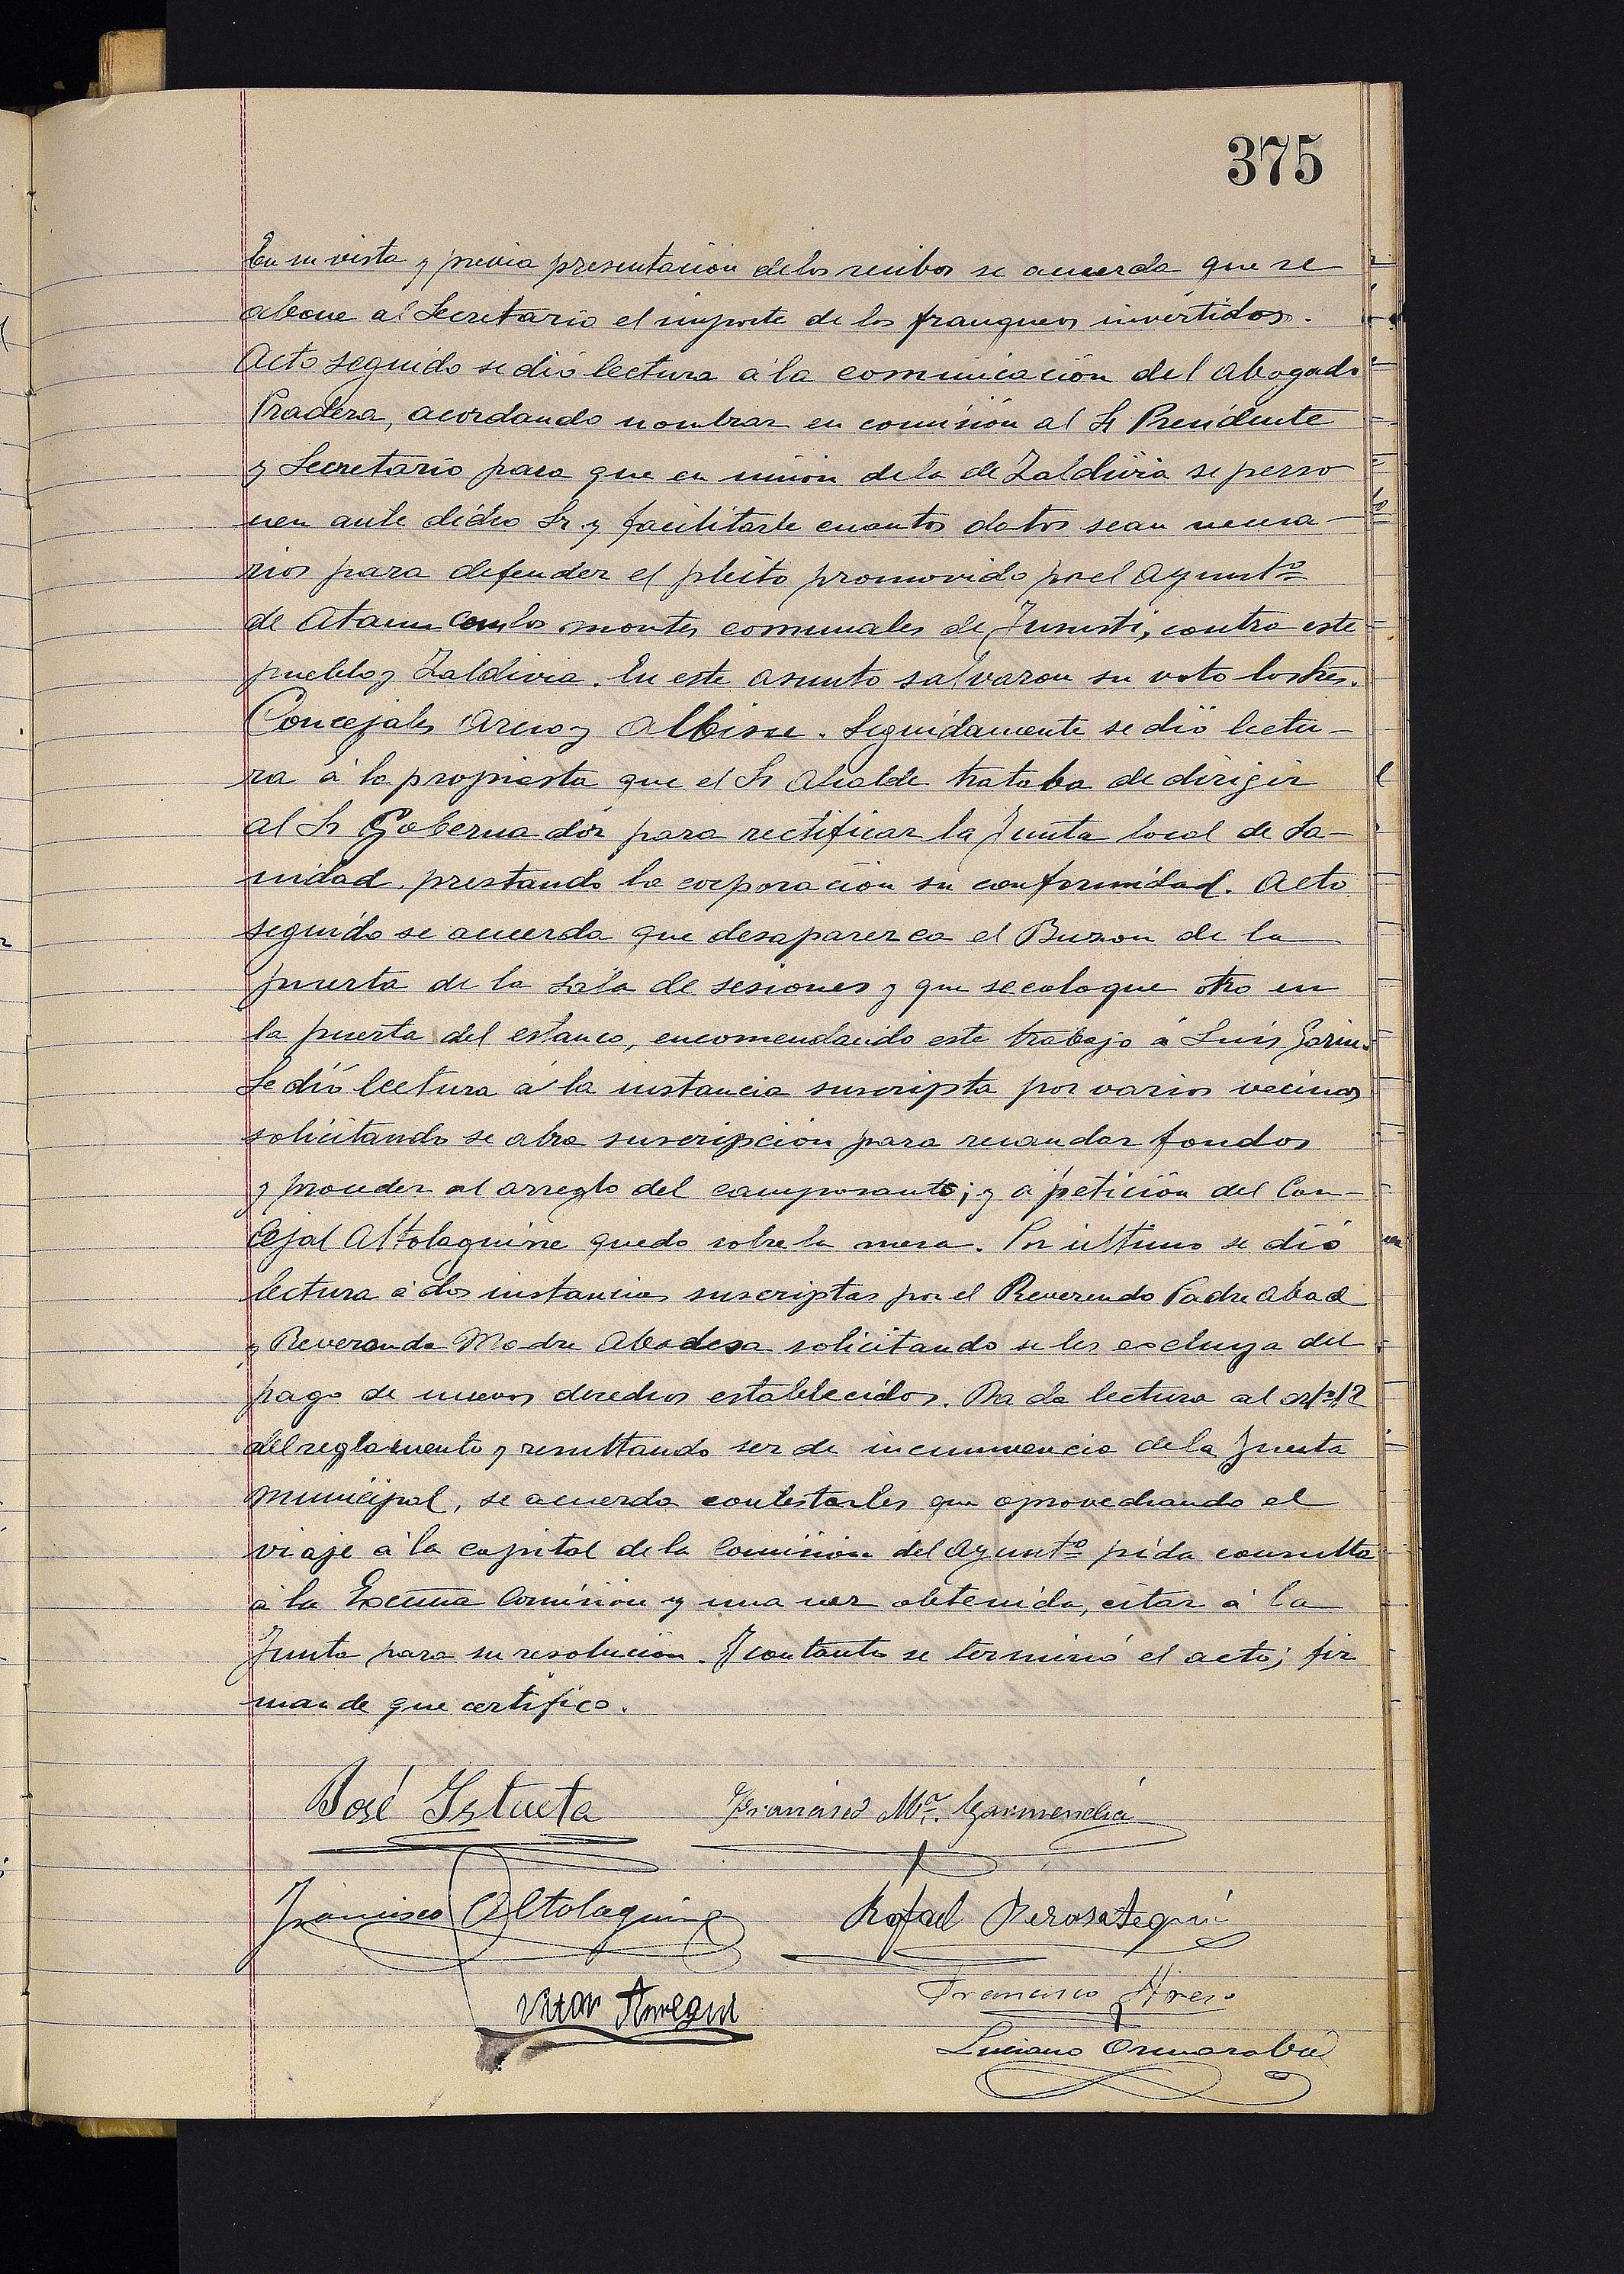 375
En su vista y previa presentación de los recibos se acuerda que se
abone al Secretario el importe de los franqueos invertidos.
Acto seguido se dió lectura á la comunicación del Abogado
Pradera, acordando nombrar en comisión al Sr Presidente
y Secretario para que en unión de la de Zaldivia se perso
nen ante dicho Sr. y facilitarle cuantos datos sean necesa-
rios para defender el pleito promovido por el Ayuntº
de Ataun con los montes comunales de Jirusti, contra este
pueblo y Zaldivia. En este asunto salvaron su voto los Sres.
Concejales Areso y Albisu. Seguidamente se dió lectu-
ra á la propuesta que el Sr Alcalde trataba de dirigir
al Sr Gobernador para rectificar la Junta local de Sa-
nidad, prestando la corporación su conformidad. Acto
seguido se acuerda que desaparezca el Buzon de la
puerta de la sala de sesiones y que se coloque otro en
la puerta del estanco, encomendando este trabajo á Luis Garin.
Se dió lectura á la instancia suscripta por varios vecinos
solicitando se abra suscripción para recaudar fondos
y proceder al arreglo del camposanto; y á petición del Con-
cejal Altolaguirre quedo sobre la mesa. Por ultimo se dió
lectura á dos instancias suscriptas por el Reverendo Padre Abad
y Reverenda Madre Abadesa solicitando se les excluya del
pago de nuevos derechos establecidos. Da da lectura al artº 12
del reglamento y resultando ser de incumvencia de la Junta
Municipal, se acuerda contestarles que aprovechando el
viaje á la capital de la Comisión del Ayuntº pida consulta
á la Excma Comisión y una vez obtenida, citar á la
Junta para su resolución. Y con tanto se terminó el acto; fir
man de que certifico.
José Istueta Francisco Mª. Garmendia
Francisco Altolaguirre Rafael Perosategui
Francisco Areso
Luciano Ormazabal